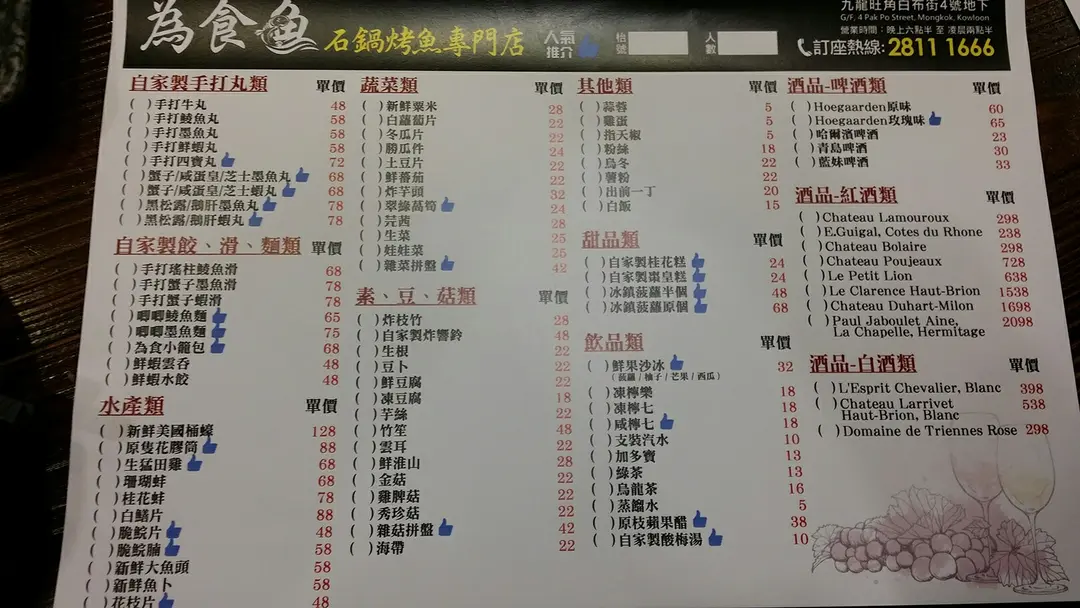 為食魚 石鍋烤魚專門店
人氣推介
枱號
人數
九龍旺角白布街4號地下
G/F, 4 Pak Po Street, Mongkok, Kowloon
營業時間：晚上六點半 至 凌晨兩點半
訂座熱線: 2811 1666
自家製手打丸類 單價
( )手打牛丸 48
( )手打鯪魚丸 58
( )手打墨魚丸 58
( )手打鮮蝦丸 58
( )手打四寶丸 72
( )蟹子/咸蛋皇/芝士墨魚丸 68
( )蟹子/咸蛋皇/芝士蝦丸 68
( )黑松露/鵝肝墨魚丸 78
( )黑松露/鵝肝蝦丸 78
自家製餃、滑、麵類 單價
( )手打瑤柱鯪魚滑 68
( )手打蟹子墨魚滑 78
( )手打蟹子蝦滑 78
( )唧唧鯪魚麵 65
( )唧唧墨魚麵 75
( )為食小籠包 68
( )鮮蝦雲吞 48
( )鮮蝦水餃 48
水產類 單價
( )新鮮美國桶蠔 128
( )原隻花膠筒 88
( )生猛田雞 68
( )珊瑚蚌 68
( )桂花蚌 78
( )白鱔片 88
( )脆鯇片 48
( )脆鯇腩 58
( )新鮮大魚頭 58
( )新鮮魚卜 58
( )花枝片 48
蔬菜類 單價
( )新鮮粟米 28
( )白蘿蔔片 22
( )冬瓜片 22
( )勝瓜件 24
( )土豆片 22
( )鮮蕃茄 22
( )炸芋頭 32
( )翠綠萵筍 24
( )芫茜 28
( )生菜 25
( )娃娃菜 25
( )雜菜拼盤 42
素、豆、菇類 單價
( )炸枝竹 28
( )自家製炸響鈴 48
( )生根 22
( )豆卜 22
( )鮮豆腐 22
( )凍豆腐 18
( )芋絲 22
( )竹笙 48
( )雲耳 22
( )鮮淮山 28
( )金菇 22
( )雞脾菇 22
( )秀珍菇 22
( )雜菇拼盤 42
( )海帶 22
其他類 單價
( )蒜蓉 5
( )雞蛋 5
( )指天椒 5
( )粉絲 18
( )烏冬 22
( )薯粉 22
( )出前一丁 20
( )白飯 15
甜品類 單價
( )自家製桂花糕 24
( )自家製棗皇糕 24
( )冰鎮菠蘿半個 48
( )冰鎮菠蘿原個 68
飲品類 單價
( )鮮果沙冰 32
(菠蘿/柚子/芒果/西瓜)
( )凍檸樂 18
( )凍檸七 18
( )咸檸七 18
( )支裝汽水 10
( )加多寶 13
( )綠茶 13
( )烏龍茶 16
( )蒸餾水 5
( )原枝蘋果醋 38
( )自家製酸梅湯 10
酒品-啤酒類 單價
( )Hoegaarden原味 60
( )Hoegaarden玫瑰味 65
( )哈爾濱啤酒 23
( )青島啤酒 30
( )藍妹啤酒 33
酒品-紅酒類 單價
( )Chateau Lamouroux 298
( )E.Guigal, Cotes du Rhone 238
( )Chateau Bolaire 298
( )Chateau Poujeaux 728
( )Le Petit Lion 638
( )Le Clarence Haut-Brion 1538
( )Chateau Duhart-Milon 1698
( )Paul Jaboulet Aine, 2098
La Chapelle, Hermitage
酒品-白酒類 單價
( )L'Esprit Chevalier, Blanc 398
( )Chateau Larrivet 538
Haut-Brion, Blanc
( )Domaine de Triennes Rose 298